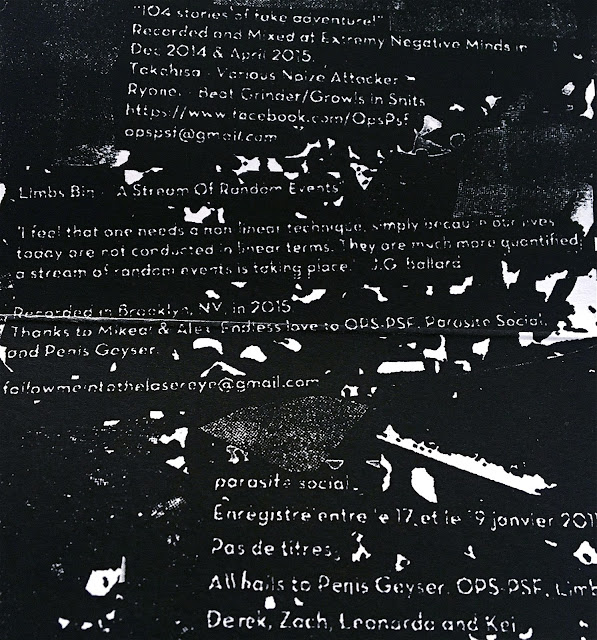 "104 stories of fake adventure!"
Recorded and Mixed at Extremy Negative Minds in
Dec 2014 & April 2015.
Takahisa - Various Noize Attacker
Ryonei - Beat Grinder/Growls in Shits
https://www.facebook.com/OpsPsf
opspsf@gmail.com
Limbs Bin - 'A Stream Of Random Events'
'I feel that one needs a non linear technique, simply because our lives
today are not conducted in linear terms. They are much more quantified;
a stream of random events is taking place.' J.G. Ballard
Recorded in Brooklyn, NY, in 2015
Thanks to & Alex. Endless love to OPS-PSF, Parasite Social,
and Penis Geyser.
followmeintothelasereye@gmail.com
parasite social
Enregistré entre le 17 et le 19 janvier 201
Pas de titres
All hails to Penis Geyser, OPS-PSF, Limb
Derek, Zach, Leonardo and Kei